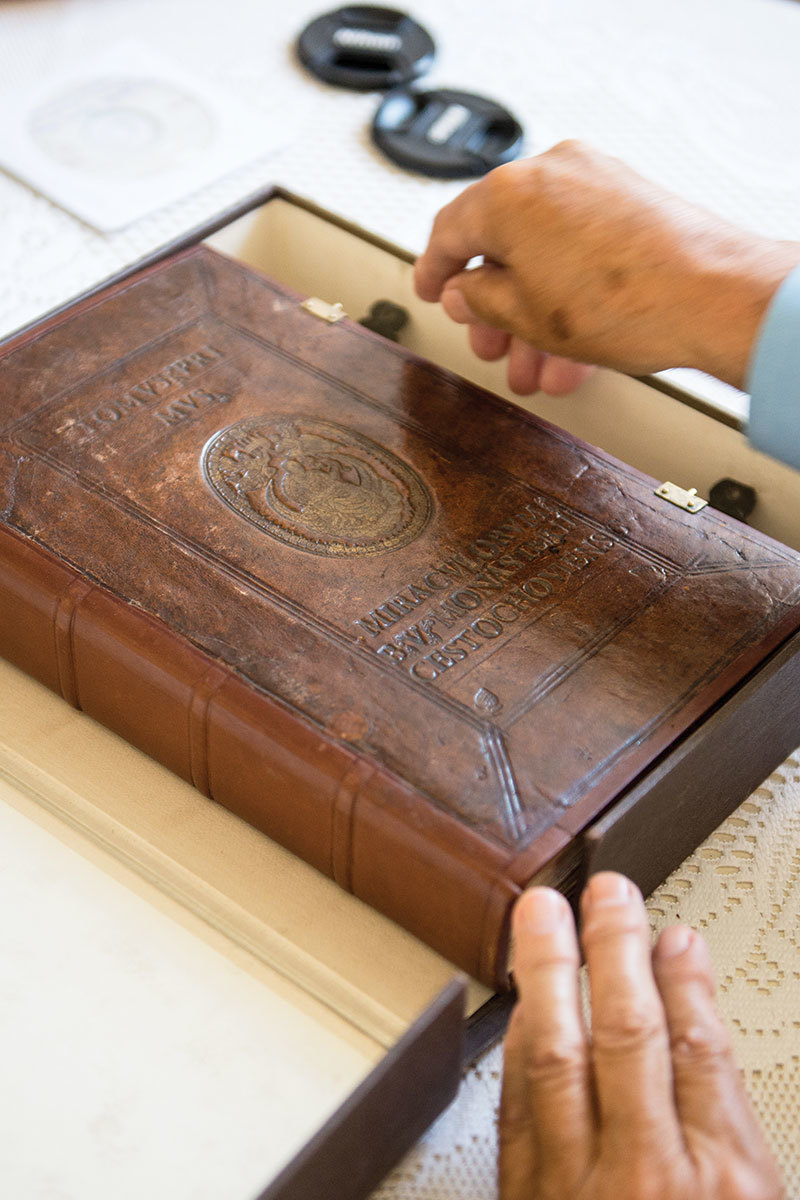 TOMVS PRI
MVS.
MIRACVLORVM
B.V. MONASTERII
CESTOCHOVIENS
Nikon